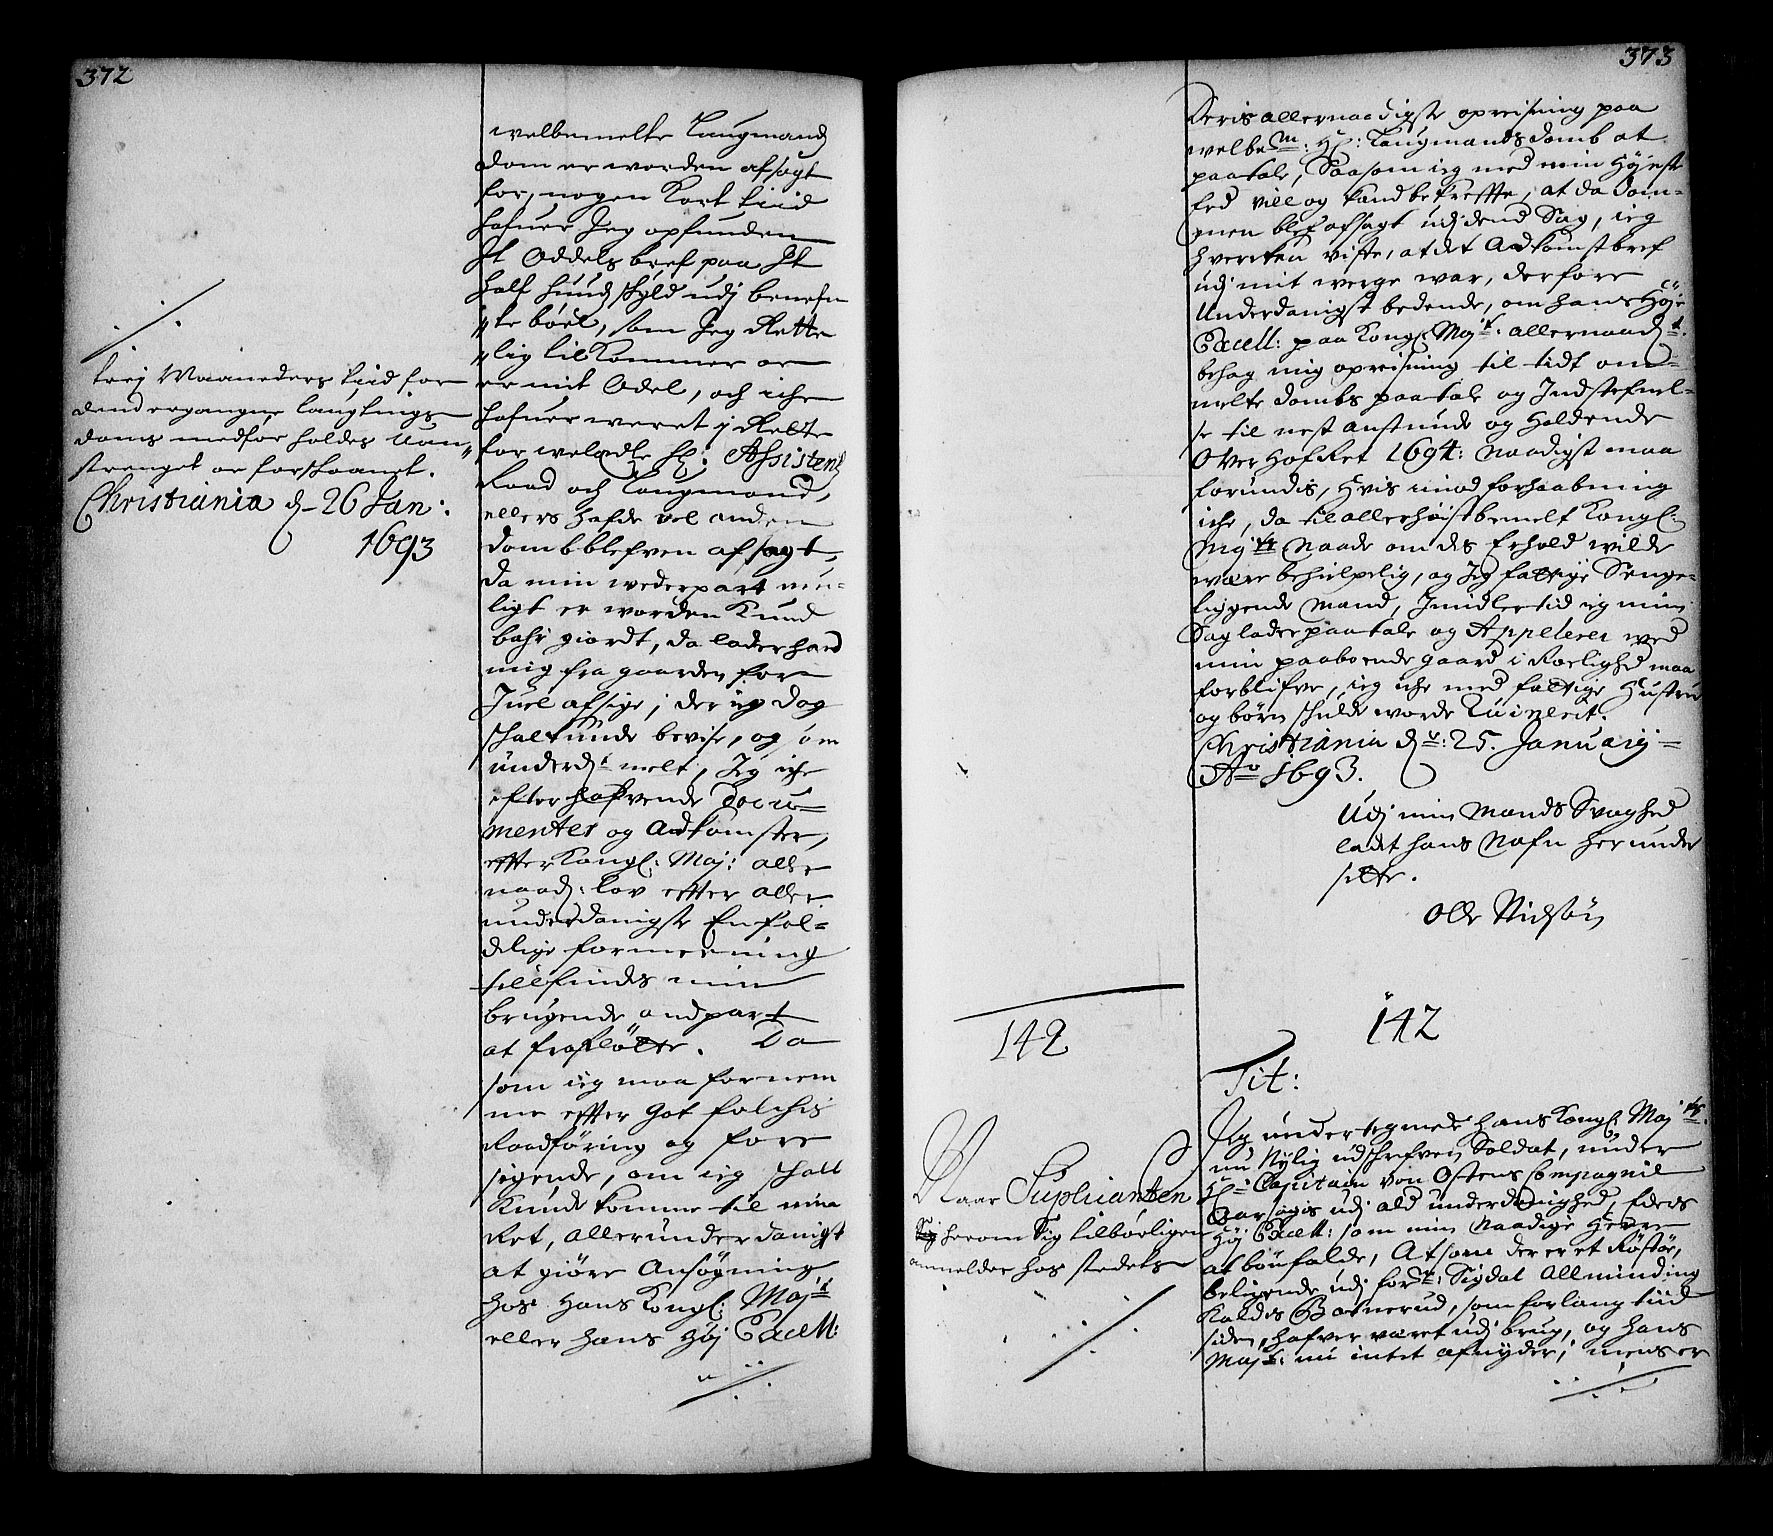 372
./.
trej Maaneders tiid for
dend ergangne laugtings
doms medfør holdes uan„
strenget oc forskaanet.
Christiania d. 26 Jan:
1693
welbemelte Laugmands
dom er worden afsagt
for, nogen kort tiid
hafuer Jeg opfunden
Et Oddels bref paa Et
half hund skyld udj benefn
„te böel, som Jeg Rette
„lig tilkommer oc
er mit Odel, och iche
hafuer weret i Rette
for weledle Hr: Assistentz
Raad och Laugmand,
ellers hafde vel anden
domb blefven afsagt,
da min wederpart nu-
ligt er worden kund
bahr giordt, da lader hand
mig fra gaarden for
Juel afsige; der ieg dog
schal kunde bevise, og om
underd:t melt, Jeg iche
efter hafvende Docu=
menter og Adkomster,
effter Kongl: Maj: aller
naad: lov effter aller
underdanigste Enfol=
delige formeening
tillfindes min
brugende andpart
at fraflötte. Da
som ieg maa fornem
me effter Got folchis
Raadföring og fore
sigende, om ieg schall
kunde komme til min
Ret, allerunderdanigst
at giöre Ansögning
hos Hans Kongl: Maj:t
eller Hans Höj Excell:
./.
373
Deris allernaadigste opreisning paa
welbem: Hr: Laugmands domb at
paatale, Saasom ieg med min Högeste
Eed vill og kand bekreffte, at da dom-
men blef afsagt udj dend Sag, ieg
hvercken viste, at det Adkomst bref
udj mit werge war, derfore
Underdanigst bedende, om hans Höje
Excell: paa Kongl: Maj:t allernaad:t
behag mig opreisning til tidt om-
melte dombs paatale og Indstefnel-
se til nest anstunde og Holdende
Over HofRet 1694: Naadigst maa
forundis, Hvis imod forhaabning
iche, da til allerhöist bemelt Kongl:
Maj:ts Naade om des Erhold wilde
were behielpelig, og Jeg fattige Senge-
liggende Mand, Imidlertid ieg min
Sag lader paatale og Appelerer wed
min paaboende gaard i Roelighed maa
forblifve, ieg iche med fattige Hustrue
og börn schulde worde Ruinerit.
Christiania d:n: 25. Januarij
Ao 1693.
Udj min Mands Svaghed
ladt hans Nafn herunder
sette.
Olle Nielsön
142
142
Tit:
Naar Suplicianten
Sig herom Sig tilbörligen
anmelder hos stedets
./.
Jeg undertegnede Hans Kongl: Maj:ts
nu Nylig udschrefven Soldat, under
Hr: Capitain von Ostens Compagnie
foraarsagis udj ald underdanighed, Eders
Höj Excell: som min Naadige Herre
at bönfalde, Atsom der er et Rödstöe,
beliggende udj for:ne: Sigdal Allminding
Kaldis Bornerud, som for lang tiid
siden, hafver veret udj brug, og Hans
Maj:t: nu intet afnyder; mens er
./.